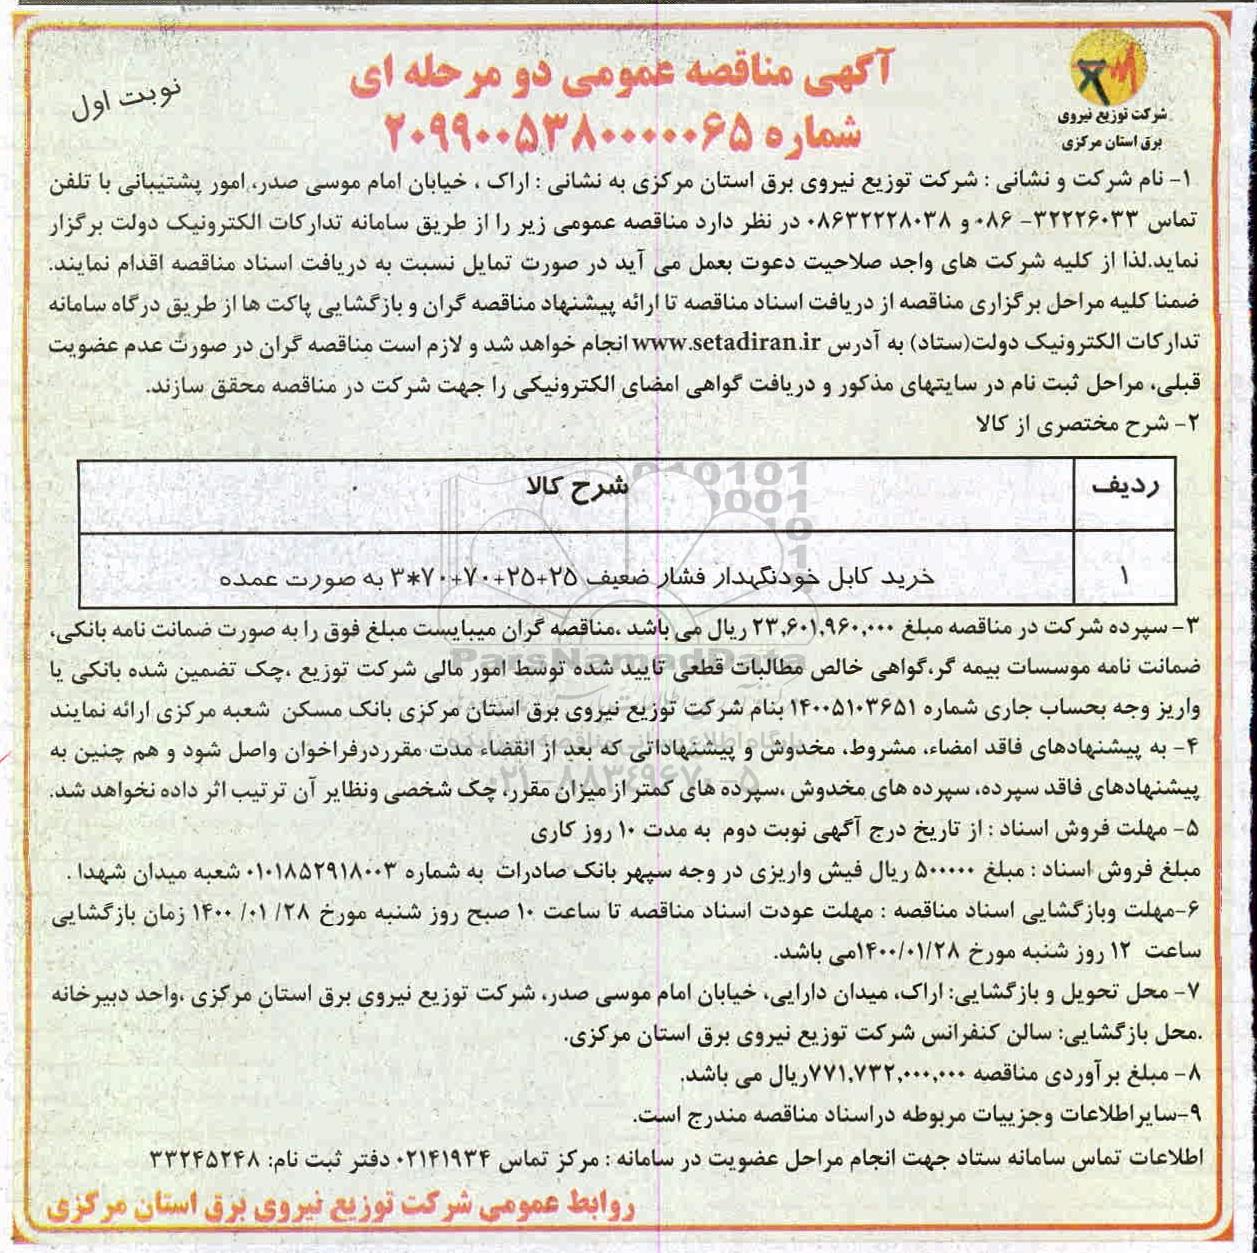 آگهی مناقصه عمومی دو مرحله ای
شماره ۲۰۹۹۰۰۵۳۸۰۰۰۰۰۶۵
نوبت اول
شرکت توزیع نیروی
برق استان مرکزی
۱- نام شرکت و نشانی : شرکت توزیع نیروی برق استان مرکزی به نشانی : اراک ، خیابان امام موسی صدر، امور پشتیبانی با تلفن
تماس ۳۲۲۲۶۰۳۳- ۰۸۶ و ۰۸۶۳۲۲۲۸۰۳۸ در نظر دارد مناقصه عمومی زیر را از طریق سامانه تدارکات الکترونیک دولت برگزار
نماید.لذا از کلیه شرکت های واجد صلاحیت دعوت بعمل می آید در صورت تمایل نسبت به دریافت اسناد مناقصه اقدام نمایند.
ضمنا کلیه مراحل برگزاری مناقصه از دریافت اسناد مناقصه تا ارائه پیشنهاد مناقصه گران و بازگشایی پاکت ها از طریق درگاه سامانه
تدارکات الکترونیک دولت(ستاد) به آدرس www.setadiran.ir انجام خواهد شد و لازم است مناقصه گران در صورت عدم عضویت
قبلی، مراحل ثبت نام در سایتهای مذکور و دریافت گواهی امضای الکترونیکی را جهت شرکت در مناقصه محقق سازند.
۲- شرح مختصری از کالا
ردیف شرح کالا
۱ خرید کابل خودنگهدار فشار ضعیف ۲۵+۲۵+۷۰+۷۰*۳ به صورت عمده
۳- سپرده شرکت در مناقصه مبلغ ۲۳,۶۰۱,۹۶۰,۰۰۰ ریال می باشد ،مناقصه گران میبایست مبلغ فوق را به صورت ضمانت نامه بانکی،
ضمانت نامه موسسات بیمه گر،گواهی خالص مطالبات قطعی تایید شده توسط امور مالی شرکت توزیع ،چک تضمین شده بانکی یا
واریز وجه بحساب جاری شماره ۱۴۰۰۵۱۰۳۶۵۱ بنام شرکت توزیع نیروی برق استان مرکزی بانک مسکن شعبه مرکزی ارائه نمایند
۴- به پیشنهادهای فاقد امضاء، مشروط، مخدوش و پیشنهاداتی که بعد از انقضاء مدت مقرردرفراخوان واصل شود و هم چنین به
پیشنهادهای فاقد سپرده، سپرده های مخدوش ،سپرده های کمتر از میزان مقرر، چک شخصی ونظایر آن ترتیب اثر داده نخواهد شد.
۵- مهلت فروش اسناد : از تاریخ درج آگهی نوبت دوم به مدت ۱۰ روز کاری
مبلغ فروش اسناد : مبلغ ۵۰۰۰۰۰ ریال فیش واریزی در وجه سپهر بانک صادرات به شماره ۰۱۰۱۸۵۲۹۱۸۰۰۳ شعبه میدان شهدا .
۶-مهلت وبازگشایی اسناد مناقصه : مهلت عودت اسناد مناقصه تا ساعت ۱۰ صبح روز شنبه مورخ ۲۸/ ۰۱/ ۱۴۰۰ زمان بازگشایی
ساعت ۱۲ روز شنبه مورخ ۱۴۰۰/۰۱/۲۸می باشد.
۷- محل تحویل و بازگشایی: اراک، میدان دارایی، خیابان امام موسی صدر، شرکت توزیع نیروی برق استان مرکزی ،واحد دبیرخانه
.محل بازگشایی: سالن کنفرانس شرکت توزیع نیروی برق استان مرکزی.
۸- مبلغ برآوردی مناقصه ۷۷۱,۷۳۲,۰۰۰,۰۰۰ریال می باشد.
۹-سایراطلاعات وجزییات مربوطه دراسناد مناقصه مندرج است.
اطلاعات تماس سامانه ستاد جهت انجام مراحل عضویت در سامانه : مرکز تماس ۰۲۱۴۱۹۳۴ دفتر ثبت نام: ۳۳۲۴۵۲۴۸
روابط عمومی شرکت توزیع نیروی برق استان مرکزی
ParsNamadData
۰۲۱-۸۸۳۴۹۶۷۰-۵